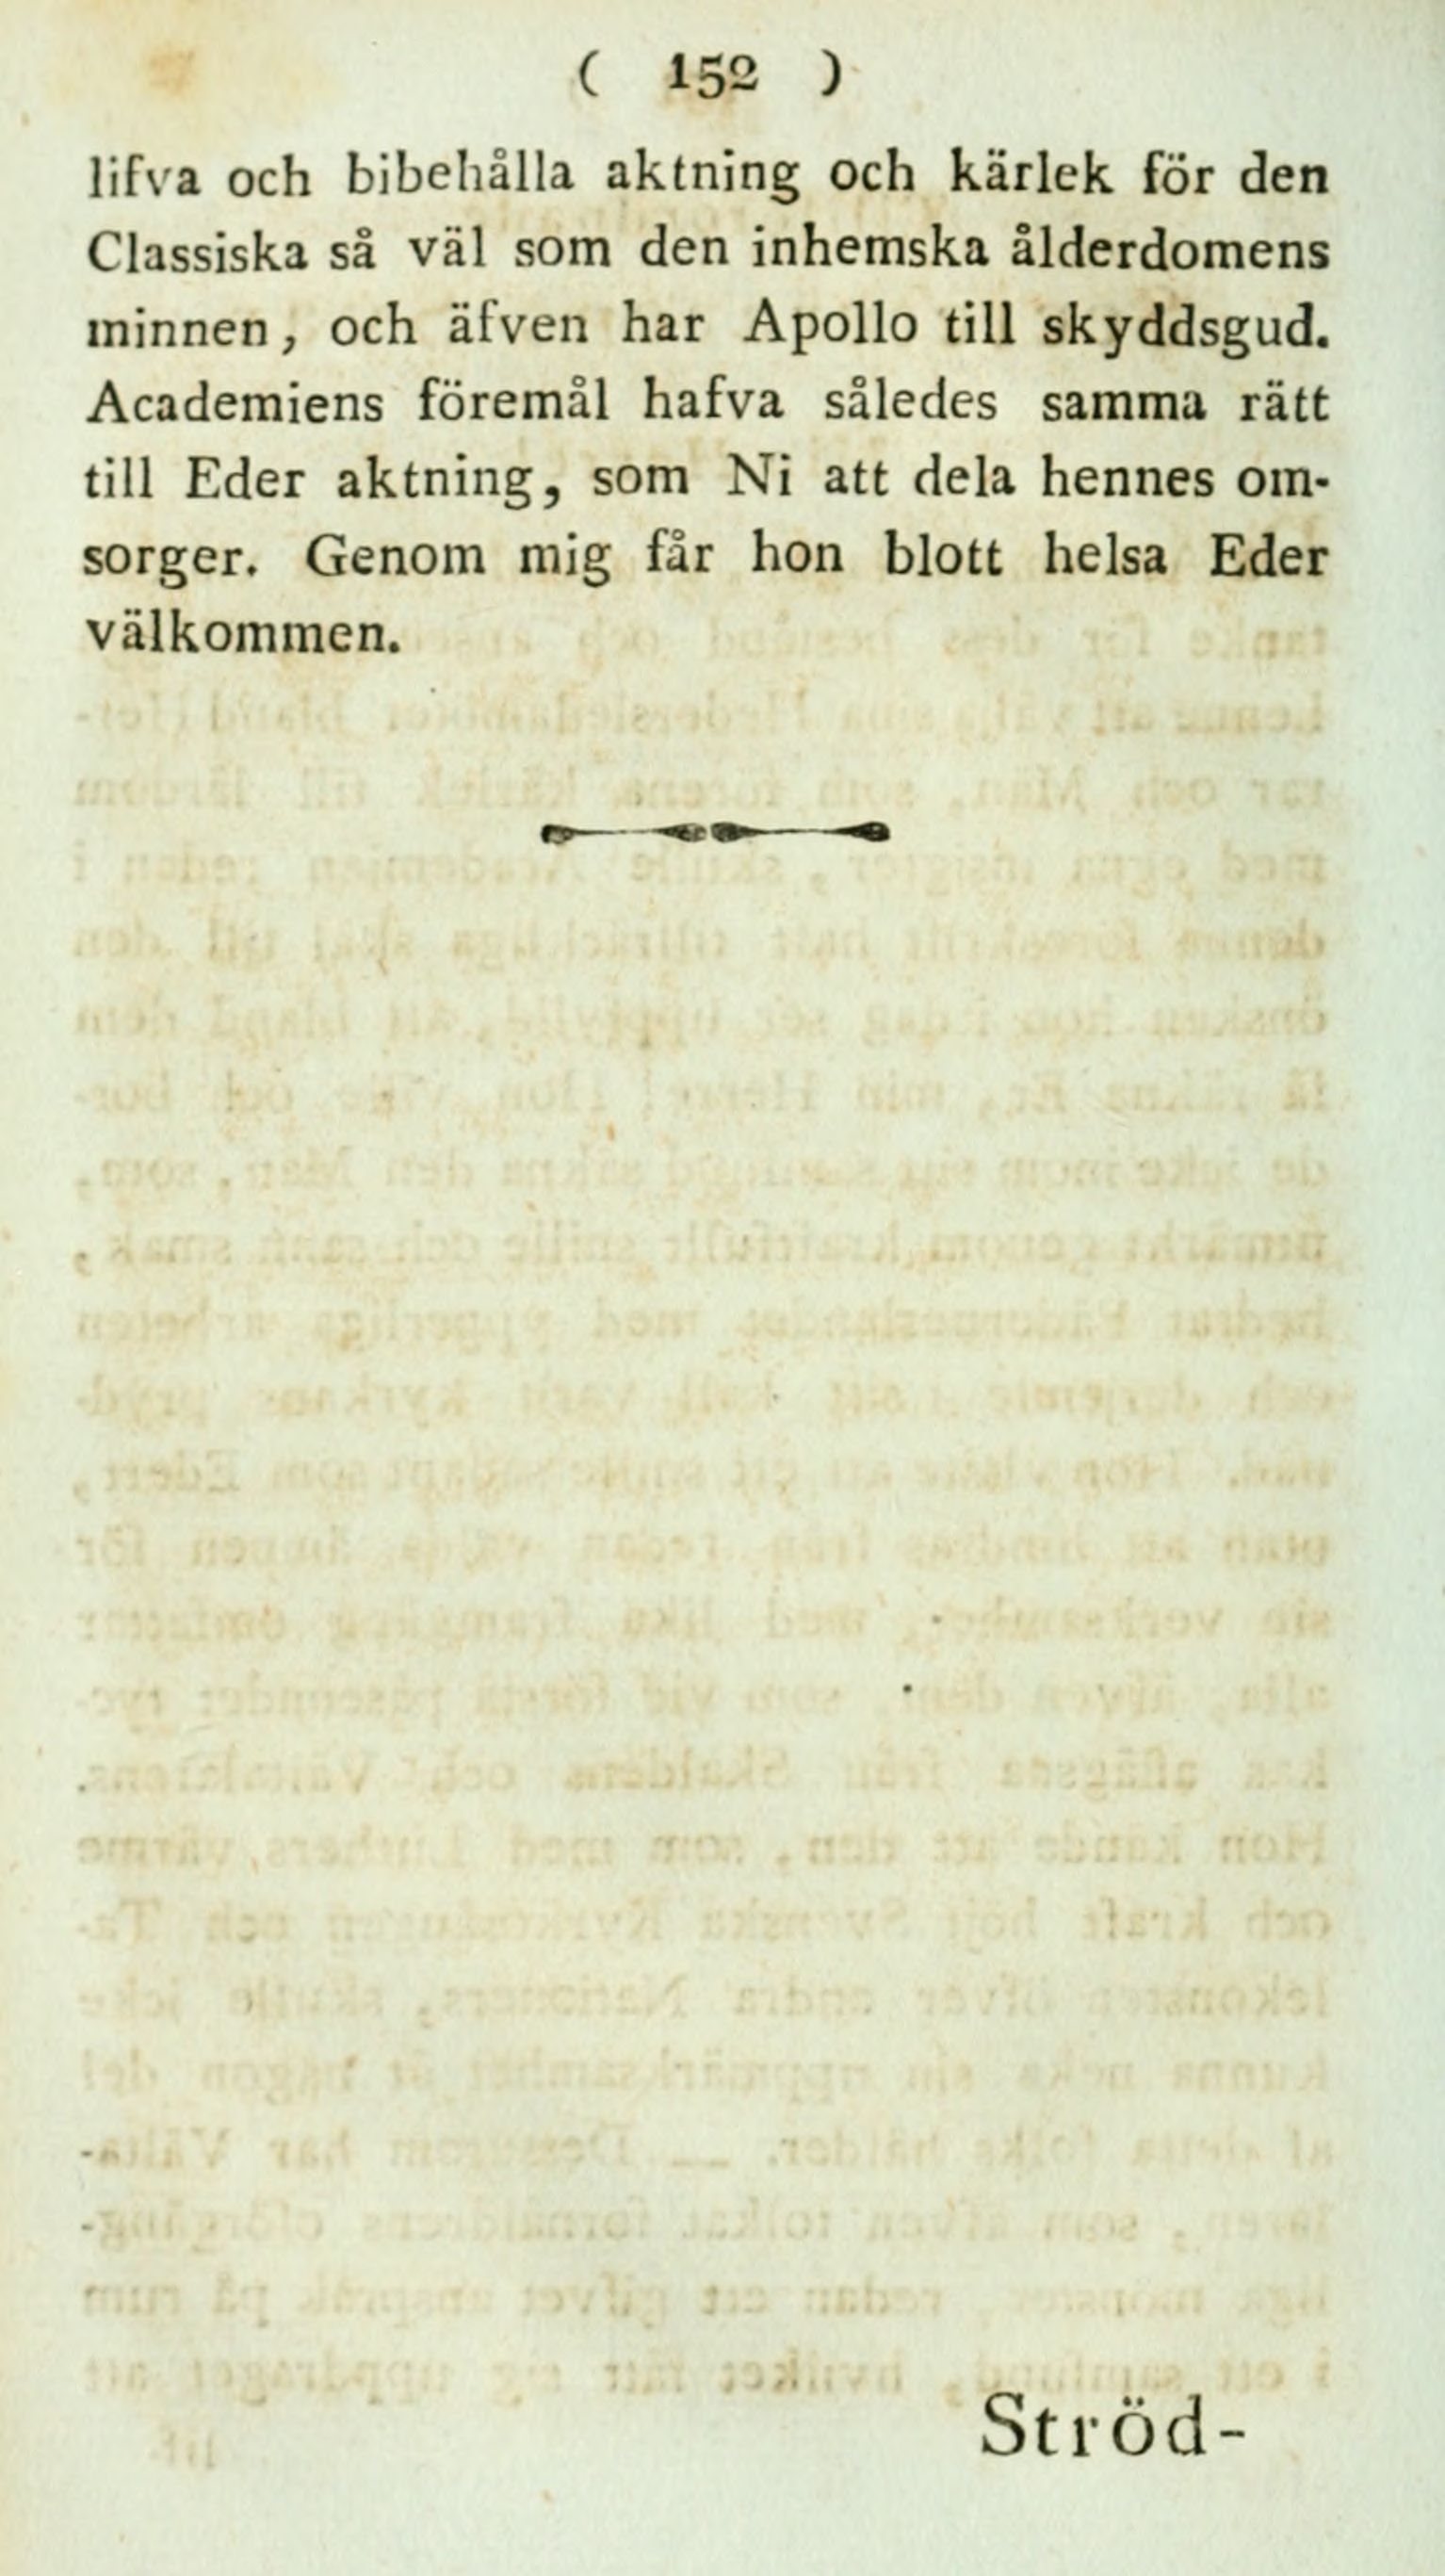 ( 152 )
lifva och bibehålla aktning och kärlek för den
Classiska så väl som den inhemska ålderdomens
minnen, och äfven har Apollo till skyddsgud.
Academiens föremål hafva således samma rätt
till Eder aktning, som Ni att dela hennes om-
sorger. Genom mig får hon blott helsa Eder
välkommen.
Ströd-